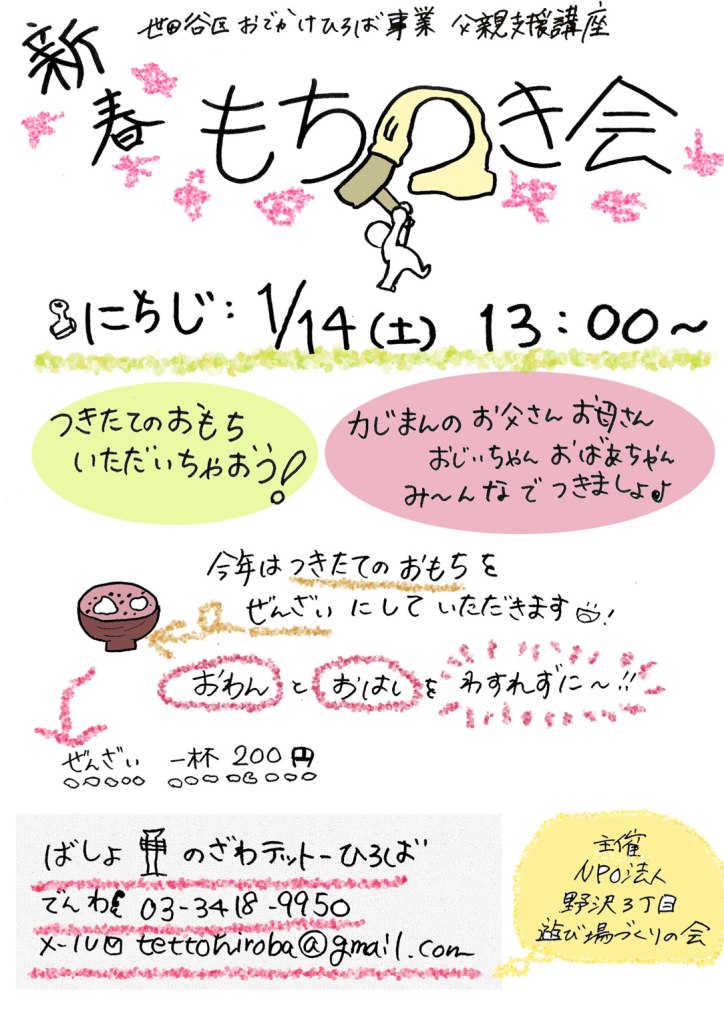 世田谷区 おでかけひろば事業 父親支援講座
新春 もちつき会
にちじ: 1/14(土) 13:00〜
つきたてのおもち
いただいちゃおう!
力じまんの お父さん お母さん
おじぃちゃん おばあちゃん
み〜んなで つきましょ♪
今年は つきたての おもちを
ぜんざい にして いただきます!
おわん と おはし を わすれずに〜!!
ぜんざい 一杯 200円
ばしょ のざわテットーひろば
でんわ 03-3418-9950
メール tettohiroba@gmail.com
主催
NPO法人
野沢3丁目
遊び場づくりの会